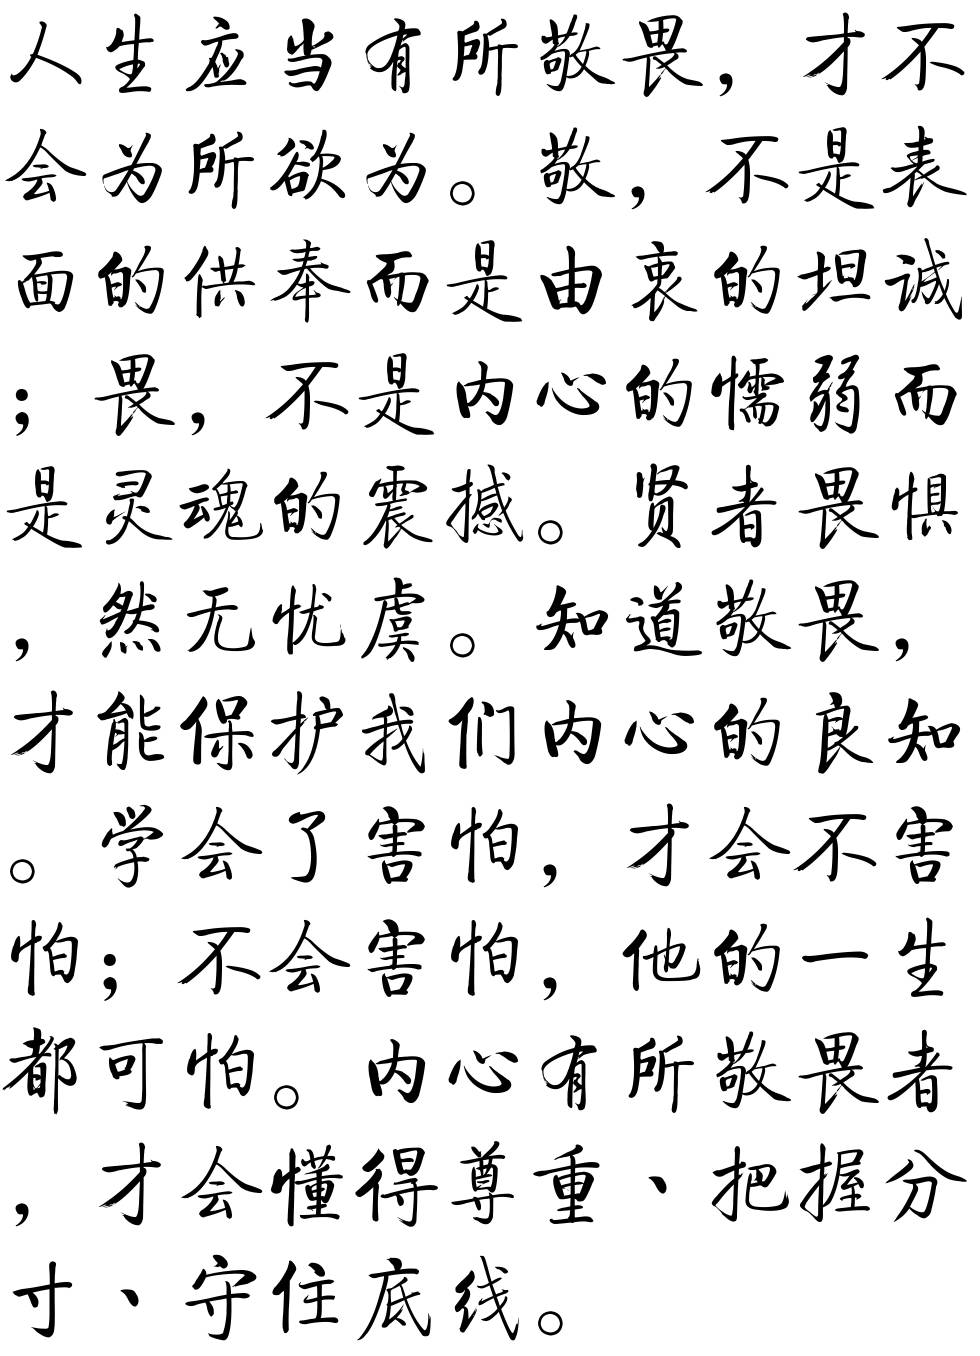 人生应当有所敬畏，才不
会为所欲为。敬，不是表
面的供奉而是由衷的坦诚
；畏，不是内心的懦弱而
是灵魂的震撼。贤者畏惧
，然无忧虞。知道敬畏，
才能保护我们内心的良知
。学会了害怕，才会不害
怕；不会害怕，他的一生
都可怕。内心有所敬畏者
，才会懂得尊重、把握分
寸、守住底线。